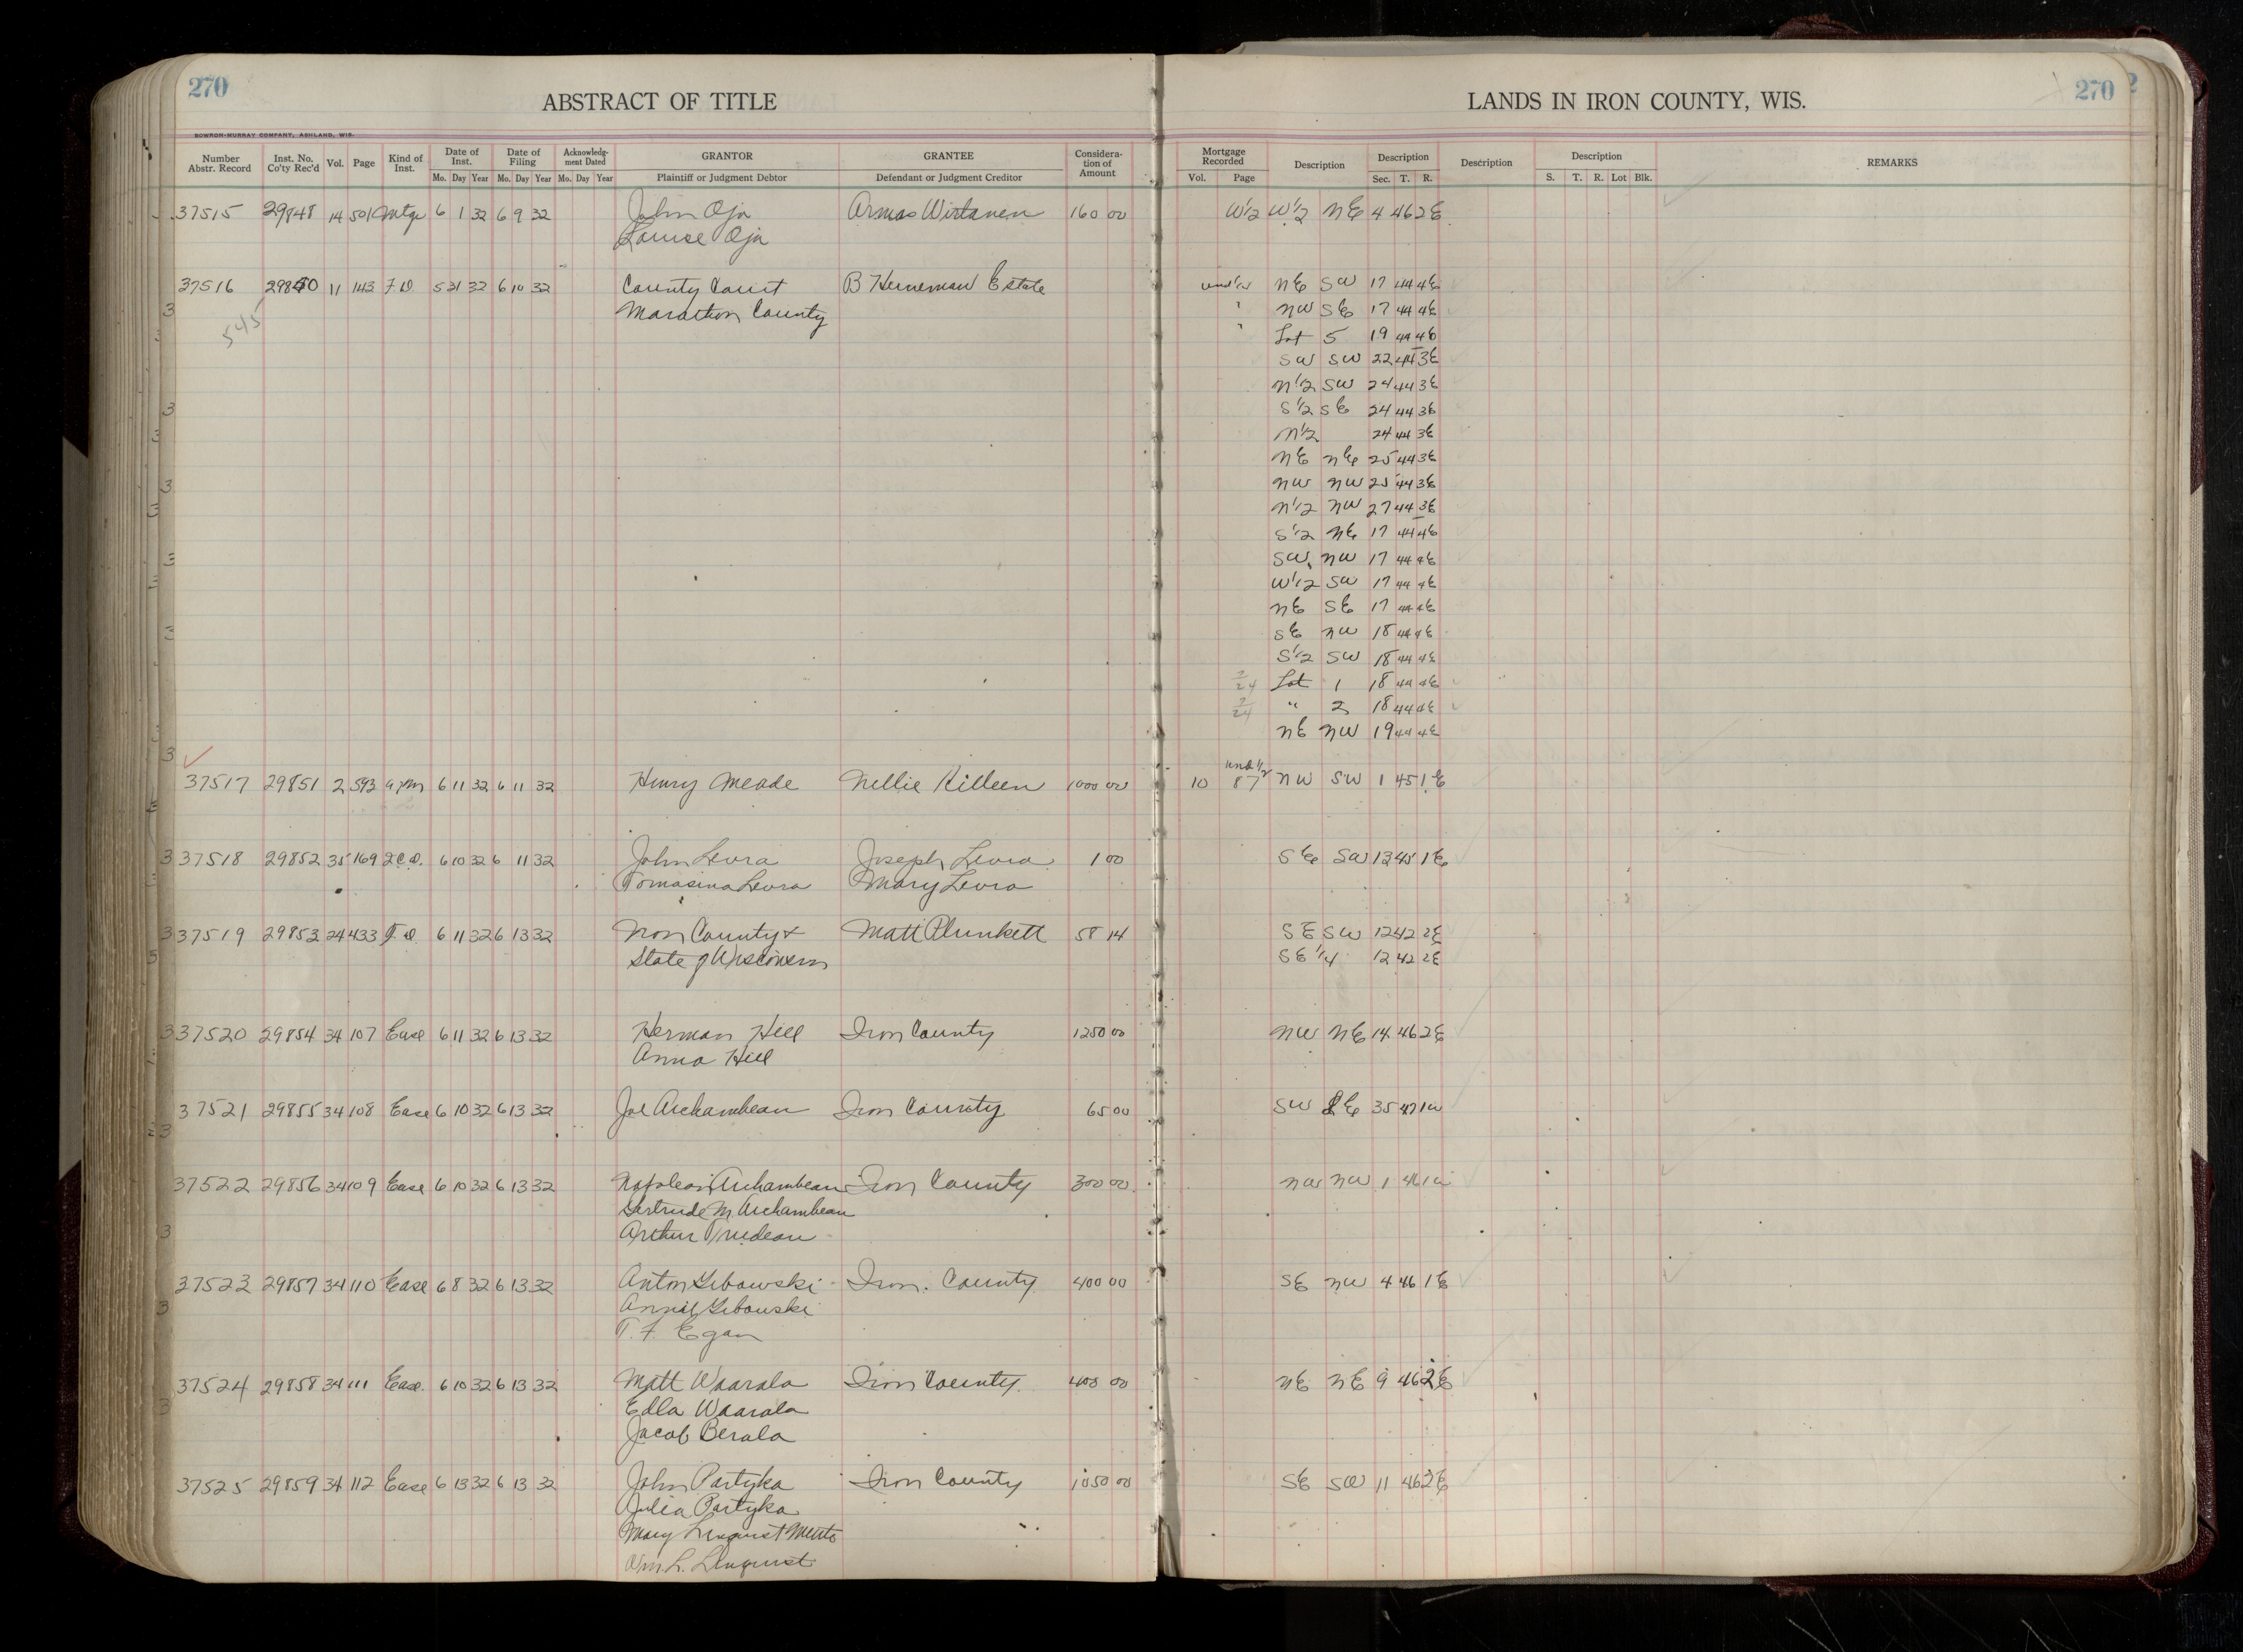 270
ABSTRACT OF TITLE
LANDS IN IRON COUNTY, WIS.
270
BOWRON-MURRAY COMPANY, ASHLAND, WIS.
Number Abstr. Record Inst. No. Co'ty Rec'd Vol. Page Kind of Inst. Date of Inst. Mo. Day Year Date of Filing Mo. Day Year Acknowledgment Dated Mo. Day Year GRANTOR Plaintiff or Judgment Debtor GRANTEE Defendant or Judgment Creditor Consideration of Amount Mortgage Recorded Vol. Page Description Description Sec. T. R. Description Description S. T. R. Lot Blk. REMARKS
37515 29848 14 501 Mtge 6 1 32 6 9 32 John Oja Armas Wirtanen 160 00 W1/2 W1/2 NE 4 46 2E
Louise Oja
37516 29850 11 143 F D 5 31 32 6 10 32 County Court B Heineman Estate NE SW 17 44 4E
Marathon County " NW SE 17 44 4E
545 " Lot 5 19 44 4E
SW SW 22 44 3E
N1/2 SW 24 44 3E
S1/2 SE 24 44 3E
N1/2 24 44 3E
NE NE 25 44 3E
NW NW 25 44 3E
N1/2 NW 27 44 3E
S1/2 NE 17 44 4E
SW NW 17 44 4E
W1/2 SW 17 44 4E
NE SE 17 44 4E
SE NW 18 44 4E
S1/2 SW 18 44 4E
7/24 Lot 1 18 44 4E
7/24 " 2 18 44 4E
NE NW 19 44 4E
und 1/2
37517 29851 2 593 a7m 6 11 32 6 11 32 Henry Meade Nellie Killeen 1000 00 10 87 NW SW 1 45 1E
37518 29852 35 169 2CD. 6 10 32 6 11 32 John Levra Joseph Levra 1 00 SE SW 13 45 1E
Tomasina Levra Mary Levra
37519 29853 24 433 T.D. 6 11 32 6 13 32 Iron County & Matt Plunkett 58 14 SE SW 12 42 2E
State of Wisconsin SE 1/4 12 42 2E
37520 29854 34 107 Ease 6 11 32 6 13 32 Herman Hill Iron County 1250 00 NW NE 14 46 2E
Anna Hill
37521 29855 34 108 Ease 6 10 32 6 13 32 Joe Archambeau Iron County 65 00 SW SE 35 47 1W
37522 29856 34 109 Ease 6 10 32 6 13 32 Napoleon Archambeau Iron County 300 00 NW NW 1 46 1W
Gertrude M Archambeau
Arthur Trudeau
37523 29857 34 110 Ease 6 8 32 6 13 32 Anton Gibowski Iron County 400 00 SE NW 4 46 1E
Gibowski
T. F. Egan
37524 29858 34 111 Ease 6 10 32 6 13 32 Matt Waarala Iron County 400 00 NE NE 9 46 2E
Edla Waarala
Jacob Berala
37525 29859 34 112 Ease 6 13 32 6 13 32 John Partyka Iron County 1050 00 SE SW 11 46 2E
Julia Partyka
Mary Linquist
Wm. L. Linquist